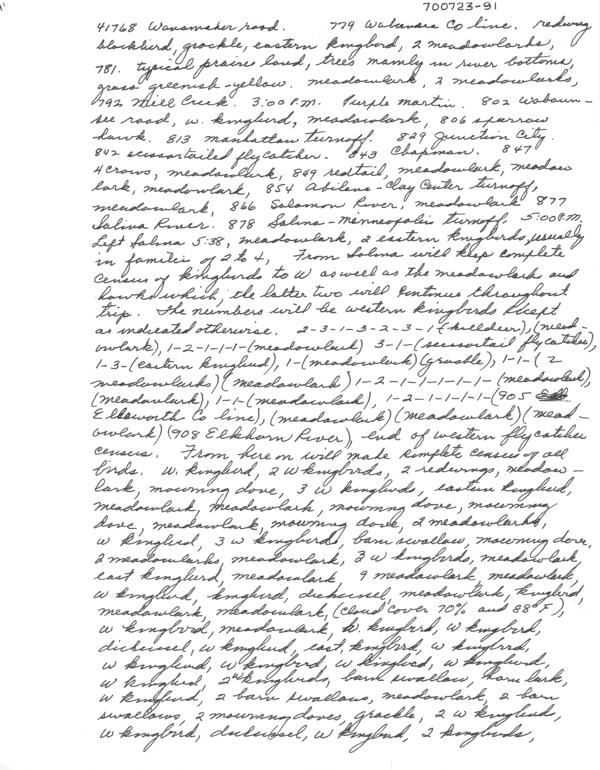 700723-91
41768 Wanamaker road. 779 Wabunsee Co line. redwing
blackbird, grackle, eastern kingbird, 2 meadowlarks,
781. typical prairie land, trees mainly in river bottoms,
grass greenish-yellow. meadowlark, 2 meadowlarks,
792 Mill Creek. 3:00 P.M. Purple martin. 802 Wabaun-
see road, w. kingbird, meadowlark, 806 sparrow
hawk. 813 manhattan turnoff. 829 Junction City.
842 scissortailed flycatcher. 843 Chapman. 847
4 crows, meadowlark, 849 redtail, meadowlark, meadow
lark, meadowlark, 854 Abilene-Clay Center turnoff,
meadowlark, 866 Solomon River, meadowlark 877
Salina River. 878 Salina-Minneapolis turnoff, 5:00 P.M.
Left Salina 5:38, meadowlark, 2 eastern kingbirds, usually
in families of 2 to 4, From Salina will keep complete
census of kingbirds to W as well as the meadowlark and
hawks which, the latter two will continue throughout
trip. The numbers will be western kingbirds except
as indicated otherwise. 2-3-1-3-2-3-1-(killdeer), (mead-
owlark), 1-2-1-1-1-(meadowlark) 3-1-(scissortail flycatcher),
1-3-(eastern kingbird), 1-(meadowlark)(grackle), 1-1-(2
meadowlarks)(meadowlark) 1-2-1-1-1-1-1-(meadowlark),
(meadowlark), 1-1-(meadowlark), 1-2-1-1-1-1-(905
Ellsworth Co line), (meadowlark)(meadowlark)(mead-
owlark)(908 Elkhorn River), end of western flycatcher
census. From here on will made komplete census of all
birds. W. kingbird, 2 W kingbirds, 2 redwings, meadow-
lark, mourning dove, 3 W kingbirds, eastern kingbird,
meadowlark, meadowlark, mourning dove, mourning
dove, meadowlark, mourning dove, 2 meadowlarks,
W kingbird, 3 W kingbirds, barn swallow, mourning dove,
2 meadowlarks, meadowlark, 3 W kingbirds, meadowlark,
east kingbird, meadowlark, 9 meadowlark, meadowlark,
W kingbird, kingbird, dickcissel, meadowlark, kingbird,
meadowlark, meadowlark, (cloud cover 70% and 88°F),
W kingbird, meadowlark, W. kingbird, W kingbird,
dickcissel, W kingbird, east. kingbird, W kingbird,
W kingbird, W kingbird, W kingbird, W kingbird,
W kingbird, 2 W kingbirds, barn swallow, horn lark,
W kingbird, 2 barn swallows, meadowlark, 2 barn
swallows, 2 mourning doves, grackle, 2 W kingbird,
W kingbird, dickcissel, W kingbird, 2 kingbirds,